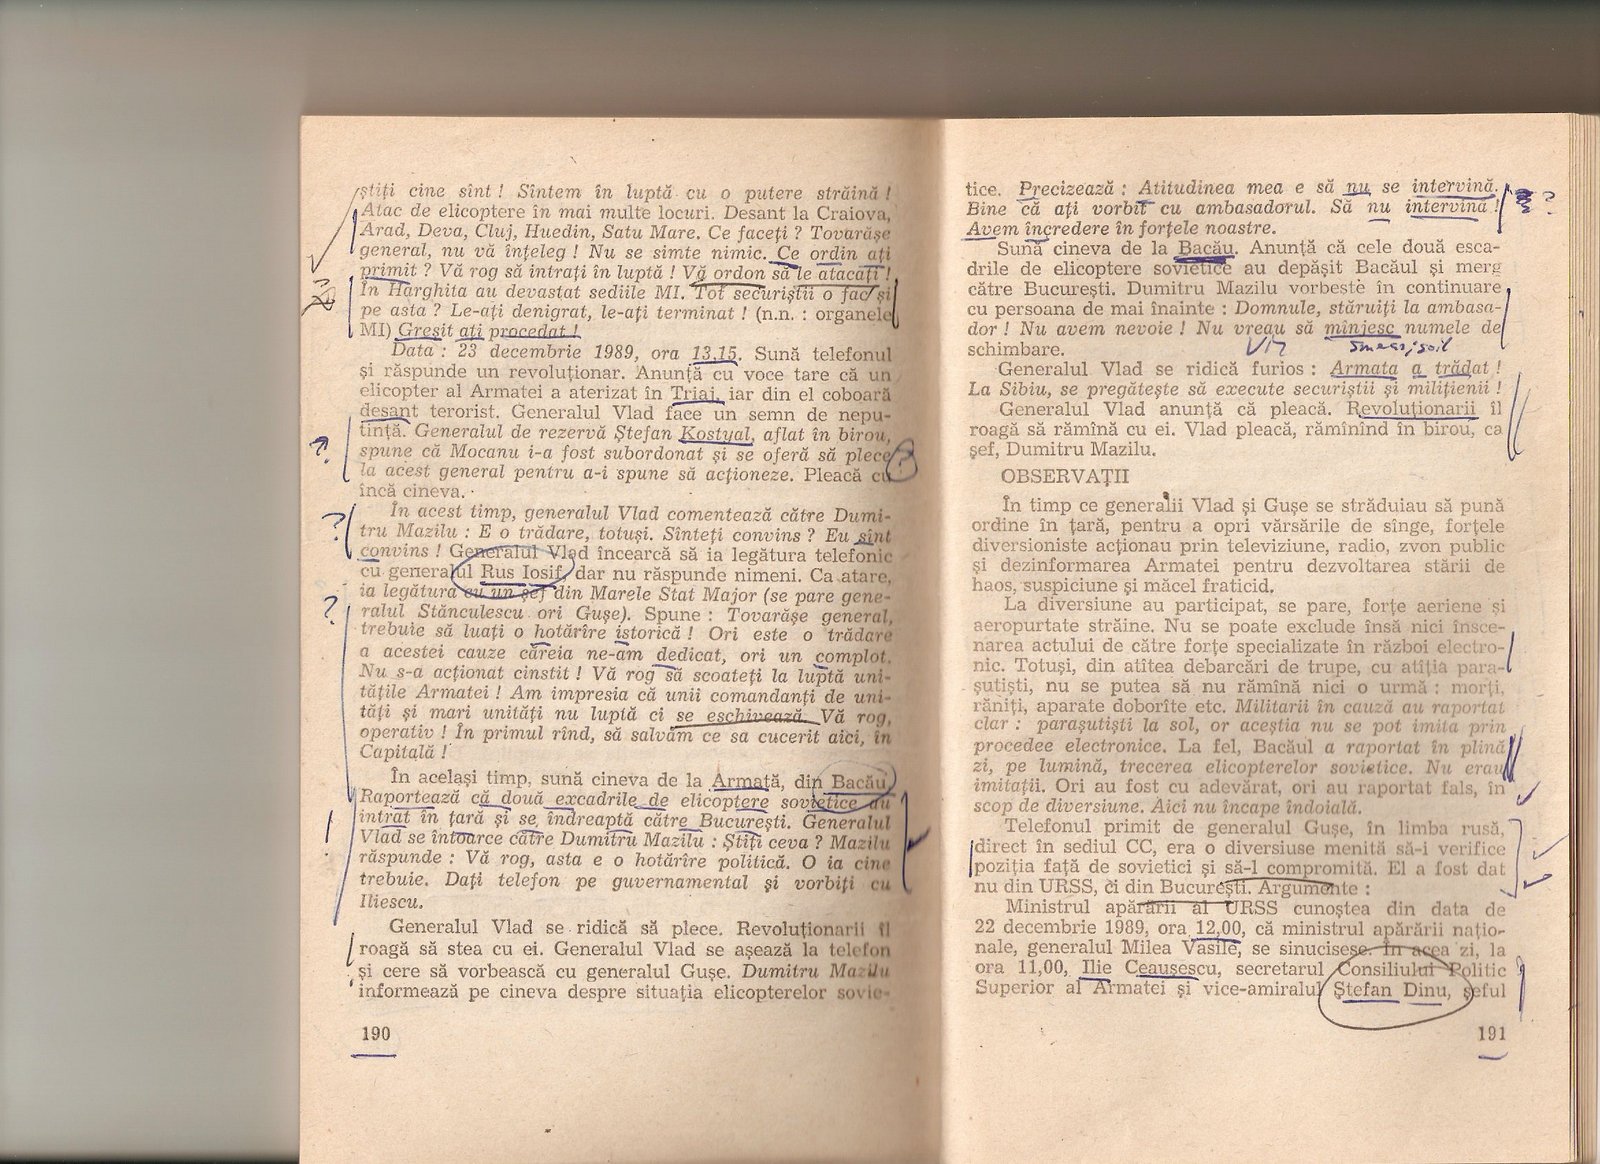 știți cine sînt ! Sîntem în luptă cu o putere străină !
Atac de elicoptere în mai multe locuri. Desant la Craiova,
Arad, Deva, Cluj, Huedin, Satu Mare. Ce faceți ? Tovarășe
general, nu vă înțeleg ! Nu se simte nimic. Ce ordin ați
primit ? Vă rog să intrați în luptă ! Vă ordon să le atacați !
În Harghita au devastat sediile MI. Tot securiștii o fac și
pe asta ? Le-ați denigrat, le-ați terminat ! (n.n. : organele
MI) Greșit ați procedat !
Data : 23 decembrie 1989, ora 13,15. Sună telefonul
și răspunde un revoluționar. Anunță cu voce tare că un
elicopter al Armatei a aterizat în Triaj, iar din el coboară
desant terorist. Generalul Vlad face un semn de nepu-
tință. Generalul de rezervă Ștefan Kostyal, aflat în birou,
spune că Mocanu i-a fost subordonat și se oferă să plece
la acest general pentru a-i spune să acționeze. Pleacă cu
încă cineva.
În acest timp, generalul Vlad comentează către Dumi-
tru Mazilu : E o trădare, totuși. Sînteți convins ? Eu sînt
convins ! Generalul Vlad încearcă să ia legătura telefonic
cu generalul Rus Iosif, dar nu răspunde nimeni. Ca atare,
ia legătura cu un șef din Marele Stat Major (se pare gene-
ralul Stănculescu ori Gușe). Spune : Tovarășe general,
trebuie să luați o hotărîre istorică ! Ori este o trădare
a acestei cauze căreia ne-am dedicat, ori un complot.
Nu s-a acționat cinstit ! Vă rog să scoateți la luptă uni-
tățile Armatei ! Am impresia că unii comandanți de uni-
tăți și mari unități nu luptă ci se eschivează. Vă rog,
operativ ! În primul rînd, să salvăm ce sa cucerit aici, în
Capitală !
În același timp, sună cineva de la Armată, din Bacău
Raportează că două excadrile de elicoptere sovietice au
intrat în țară și se îndreaptă către București. Generalul
Vlad se întoarce către Dumitru Mazilu : Știți ceva ? Mazilu
răspunde : Vă rog, asta e o hotărîre politică. O ia cine
trebuie. Dați telefon pe guvernamental și vorbiți cu
Iliescu.
Generalul Vlad se ridică să plece. Revoluționarii îl
roagă să stea cu ei. Generalul Vlad se așează la telefon
și cere să vorbească cu generalul Gușe. Dumitru Mazilu
informează pe cineva despre situația elicopterelor sovie-
190
tice. Precizează : Atitudinea mea e să nu se intervină.
Bine că ați vorbit cu ambasadorul. Să nu intervină !
Avem încredere în forțele noastre.
Sună cineva de la Bacău. Anunță că cele două esca-
drile de elicoptere sovietice au depășit Bacăul și merg
către București. Dumitru Mazilu vorbește în continuare
cu persoana de mai înainte : Domnule, stăruiți la ambasa-
dor ! Nu avem nevoie ! Nu vreau să mînjesc numele de
schimbare.
smear, soil
Generalul Vlad se ridică furios : Armata a trădat !
La Sibiu, se pregătește să execute securiștii și milițienii !
Generalul Vlad anunță că pleacă. Revoluționarii îl
roagă să rămînă cu ei. Vlad pleacă, rămînînd în birou, ca
șef, Dumitru Mazilu.
OBSERVAȚII
În timp ce generalii Vlad și Gușe se străduiau să pună
ordine în țară, pentru a opri vărsările de sînge, forțele
diversioniste acționau prin televiziune, radio, zvon public
și dezinformarea Armatei pentru dezvoltarea stării de
haos, suspiciune și măcel fraticid.
La diversiune au participat, se pare, forțe aeriene și
aeropurtate străine. Nu se poate exclude însă nici însce-
narea actului de către forțe specializate în război electro-
nic. Totuși, din atîtea debarcări de trupe, cu atîția para-
șutiști, nu se putea să nu rămînă nici o urmă : morți,
răniți, aparate doborîte etc. Militarii în cauză au raportat
clar : parașutiști la sol, or aceștia nu se pot imita prin
procedee electronice. La fel, Bacăul a raportat în plină
zi, pe lumină, trecerea elicopterelor sovietice. Nu erau
imitații. Ori au fost cu adevărat, ori au raportat fals, în
scop de diversiune. Aici nu încape îndoială.
Telefonul primit de generalul Gușe, în limba rusă,
direct în sediul CC, era o diversiuse menită să-i verifice
poziția față de sovietici și să-l compromită. El a fost dat
nu din URSS, ci din București. Argumente :
Ministrul apărării al URSS cunoștea din data de
22 decembrie 1989, ora 12,00, că ministrul apărării națio-
nale, generalul Milea Vasile, se sinucisese. În acea zi, la
ora 11,00, Ilie Ceaușescu, secretarul Consiliului Politic
Superior al Armatei și vice-amiralul Ștefan Dinu, șeful
191